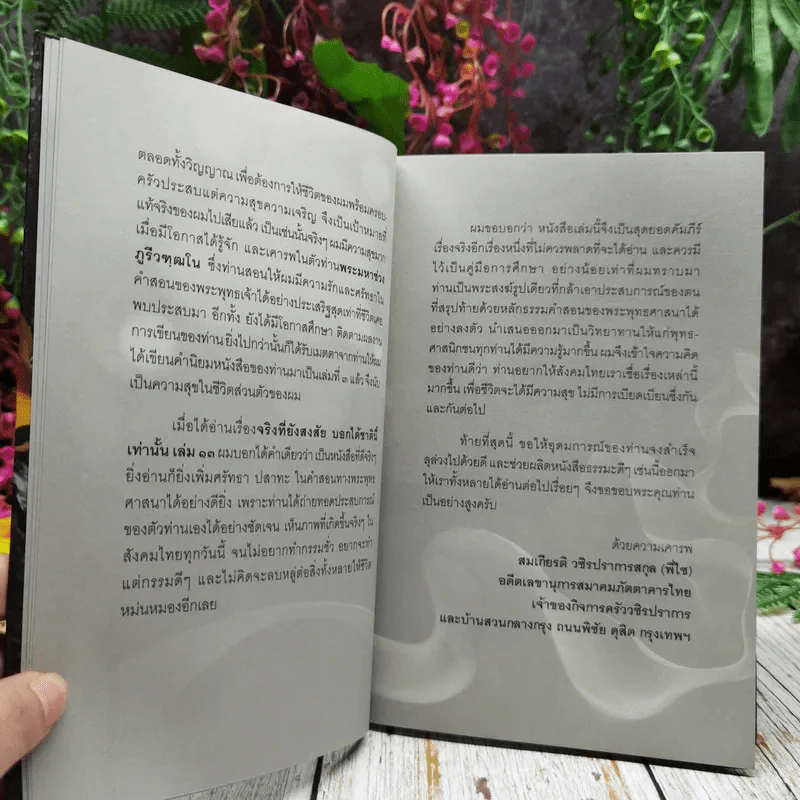 ตลอดทั้งวิญญาณ เพื่อต้องการให้ชีวิตของผมพร้อมครอบ-
ครัวประสบแต่ความสุขความเจริญ จึงเป็นเป้าหมายที่
แท้จริงของผมไปเสียแล้ว เป็นเช่นนั้นจริงๆ ผมมีความสุขมาก
เมื่อมีโอกาสได้รู้จัก และเคารพในตัวท่านพระมหาช่วง
ภูริวฑฺฒโน ซึ่งท่านสอนให้ผมมีความรักและศรัทธาใน
คำสอนของพระพุทธเจ้าได้อย่างประเสริฐสุดเท่าที่ชีวิตเคย
พบประสบมา อีกทั้ง ยังได้มีโอกาสศึกษา ติดตามผลงาน
การเขียนของท่าน ยิ่งไปกว่านั้นก็ได้รับเมตตาจากท่านให้ผม
ได้เขียนคำนิยมหนังสือของท่านมาเป็นเล่มที่ ๓ แล้ว จึงนับ
เป็นความสุขในชีวิตส่วนตัวของผม
เมื่อได้อ่านเรื่องจริงที่ยังสงสัย บอกได้ชาตินี้
เท่านั้น เล่ม ๑๓ ผมบอกได้คำเดียวว่า เป็นหนังสือที่ดีจริงๆ
ยิ่งอ่านก็ยิ่งเพิ่มศรัทธา ปสาทะ ในคำสอนทางพระพุทธ
ศาสนาได้อย่างดียิ่ง เพราะท่านได้ถ่ายทอดประสบการณ์
ของตัวท่านเองได้อย่างชัดเจน เห็นภาพที่เกิดขึ้นจริงๆ ใน
สังคมไทยทุกวันนี้ จนไม่อยากทำกรรมชั่ว อยากจะทำ
แต่กรรมดีๆ และไม่คิดจะลบหลู่ต่อสิ่งทั้งหลายให้ชีวิต
หม่นหมองอีกเลย
ผมขอบอกว่า หนังสือเล่มนี้จึงเป็นสุดยอดคัมภีร์
เรื่องจริงอีกเรื่องหนึ่งที่ไม่ควรพลาดที่จะได้อ่าน และควรมี
ไว้เป็นคู่มือการศึกษา อย่างน้อยเท่าที่ผมทราบมา
ท่านเป็นพระสงฆ์รูปเดียวที่กล้าเอาประสบการณ์ของตน
ที่สรุปท้ายด้วยหลักธรรมคำสอนของพระพุทธศาสนาได้
อย่างลงตัว นำเสนอออกมาเป็นวิทยาทานให้แก่พุทธ-
ศาสนิกชนทุกท่านได้มีความรู้มากขึ้น ผมจึงเข้าใจความคิด
ของท่านดีว่า ท่านอยากให้สังคมไทยเราเชื่อเรื่องเหล่านี้
มากขึ้น เพื่อชีวิตจะได้มีความสุข ไม่มีการเบียดเบียนซึ่งกัน
และกันต่อไป
ท้ายที่สุดนี้ ขอให้อุดมการณ์ของท่านจงสำเร็จ
ลุล่วงไปด้วยดี และช่วยผลิตหนังสือธรรมะดีๆ เช่นนี้ออกมา
ให้เราทั้งหลายได้อ่านต่อไปเรื่อยๆ จึงขอขอบพระคุณท่าน
เป็นอย่างสูงครับ
ด้วยความเคารพ
สมเกียรติ วชิรปราการสกุล (พี่ไซ)
อดีตเลขานุการสมาคมภัตตาคารไทย
เจ้าของกิจการครัววชิรปราการ
และบ้านสวนกลางกรุง ถนนพิชัย ดุสิต กรุงเทพฯ